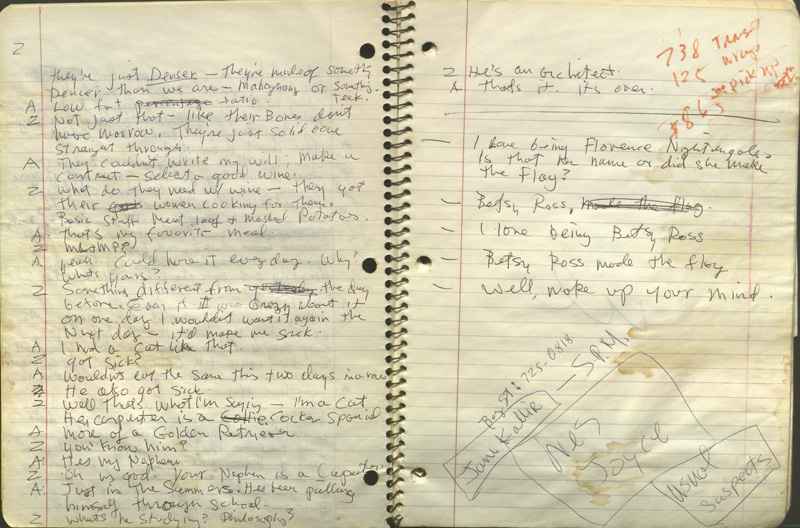 2
they're just Denser - they're made of somethg
Denser than we are - Mahoghany or Somethg.
Teak.
A Low fat percentage ratio.
Z Not just that - like their Bones don't
have marrow. They're just solid bone
straight through.
A They couldn't write my will; Make a
contract - select a good wine.
Z What do they need w/ wine - they got
their women cooking for them.
Basic Stuff Meat loaf & Mashed Potatoes.
A That's my favorite meal.
Z MLoMP??
A yeah. Could have it every day. Why?
What's yours?
Z Something different from yesterday the day
before. Even if I was crazy about it
on one day I wouldn't want it again the
Next day - it'd make me sick.
A I had a Cat like that.
Z got sick?
A Wouldn't eat the same thing two days in a row
He also got sick.
Z Well that's what I'm saying - I'm a cat
Her carpenter is a Collie Cocker Spaniel
A More of a Golden Retriever
Z You know him?
A He's my Nephew.
Z Oh my god. Your Nephew is a Carpenter.
A: Just in the Summers. He's been putting
himself through school.
Z What's he studying? Philosophy?
Z He's an architect.
A That's it. it's over.
738 Transit
125 wrap
$863
- I love being Florence Nightengale.
Is that her name or did she make
the flag?
- Betsy Ross, made the flag.
- I love being Betsy Ross
- Betsy Ross made the flag
- Well, make up your mind.
725-0818
- 5 P.M.
Jane Kallir
Joyce
Usual
Suspects